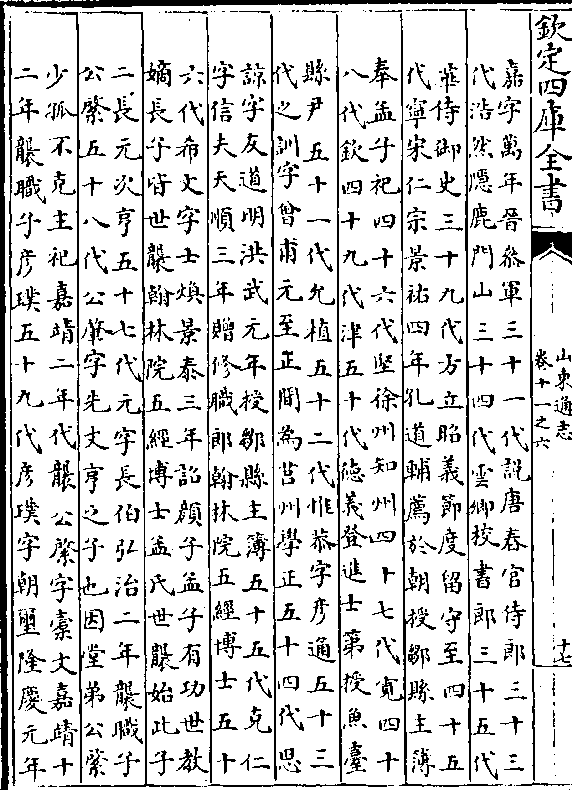 欽定四庫全書
山東通志
卷十一之六
十七
嘉字萬年晉叅軍三十一代説唐春官侍郎三十三
代浩然隱鹿門山三十四代雲卿校書郎三十五代
華侍御史三十九代方立昭義節度留守至四十五
代寧宋仁宗景祐四年孔道輔薦於朝授鄒縣主簿
奉孟子祀四十六代堅徐州知州四十七代寛四十
八代欽四十九代津五十代德義登進士第授魚臺
縣尹五十一代允植五十二代惟恭字彦通五十三
代之訓字曾甫元至正間為莒州學正五十四代思
諒字友道明洪武元年授鄒縣主簿五十五代克仁
字信夫天順三年贈修職郎翰林院五經博士五十
六代希文字士煥景泰三年詔顔子孟子有功世教
嫡長子皆世襲翰林院五經博士孟氏世襲始此子
二長元次亨五十七代元字長伯弘治二年襲職子
公綮五十八代公肇字先文亨之子也因堂弟公綮
少孤不克主祀嘉靖二年代襲公綮字橐文嘉靖十
二年襲職子彦璞五十九代彦璞字朝璽隆慶元年